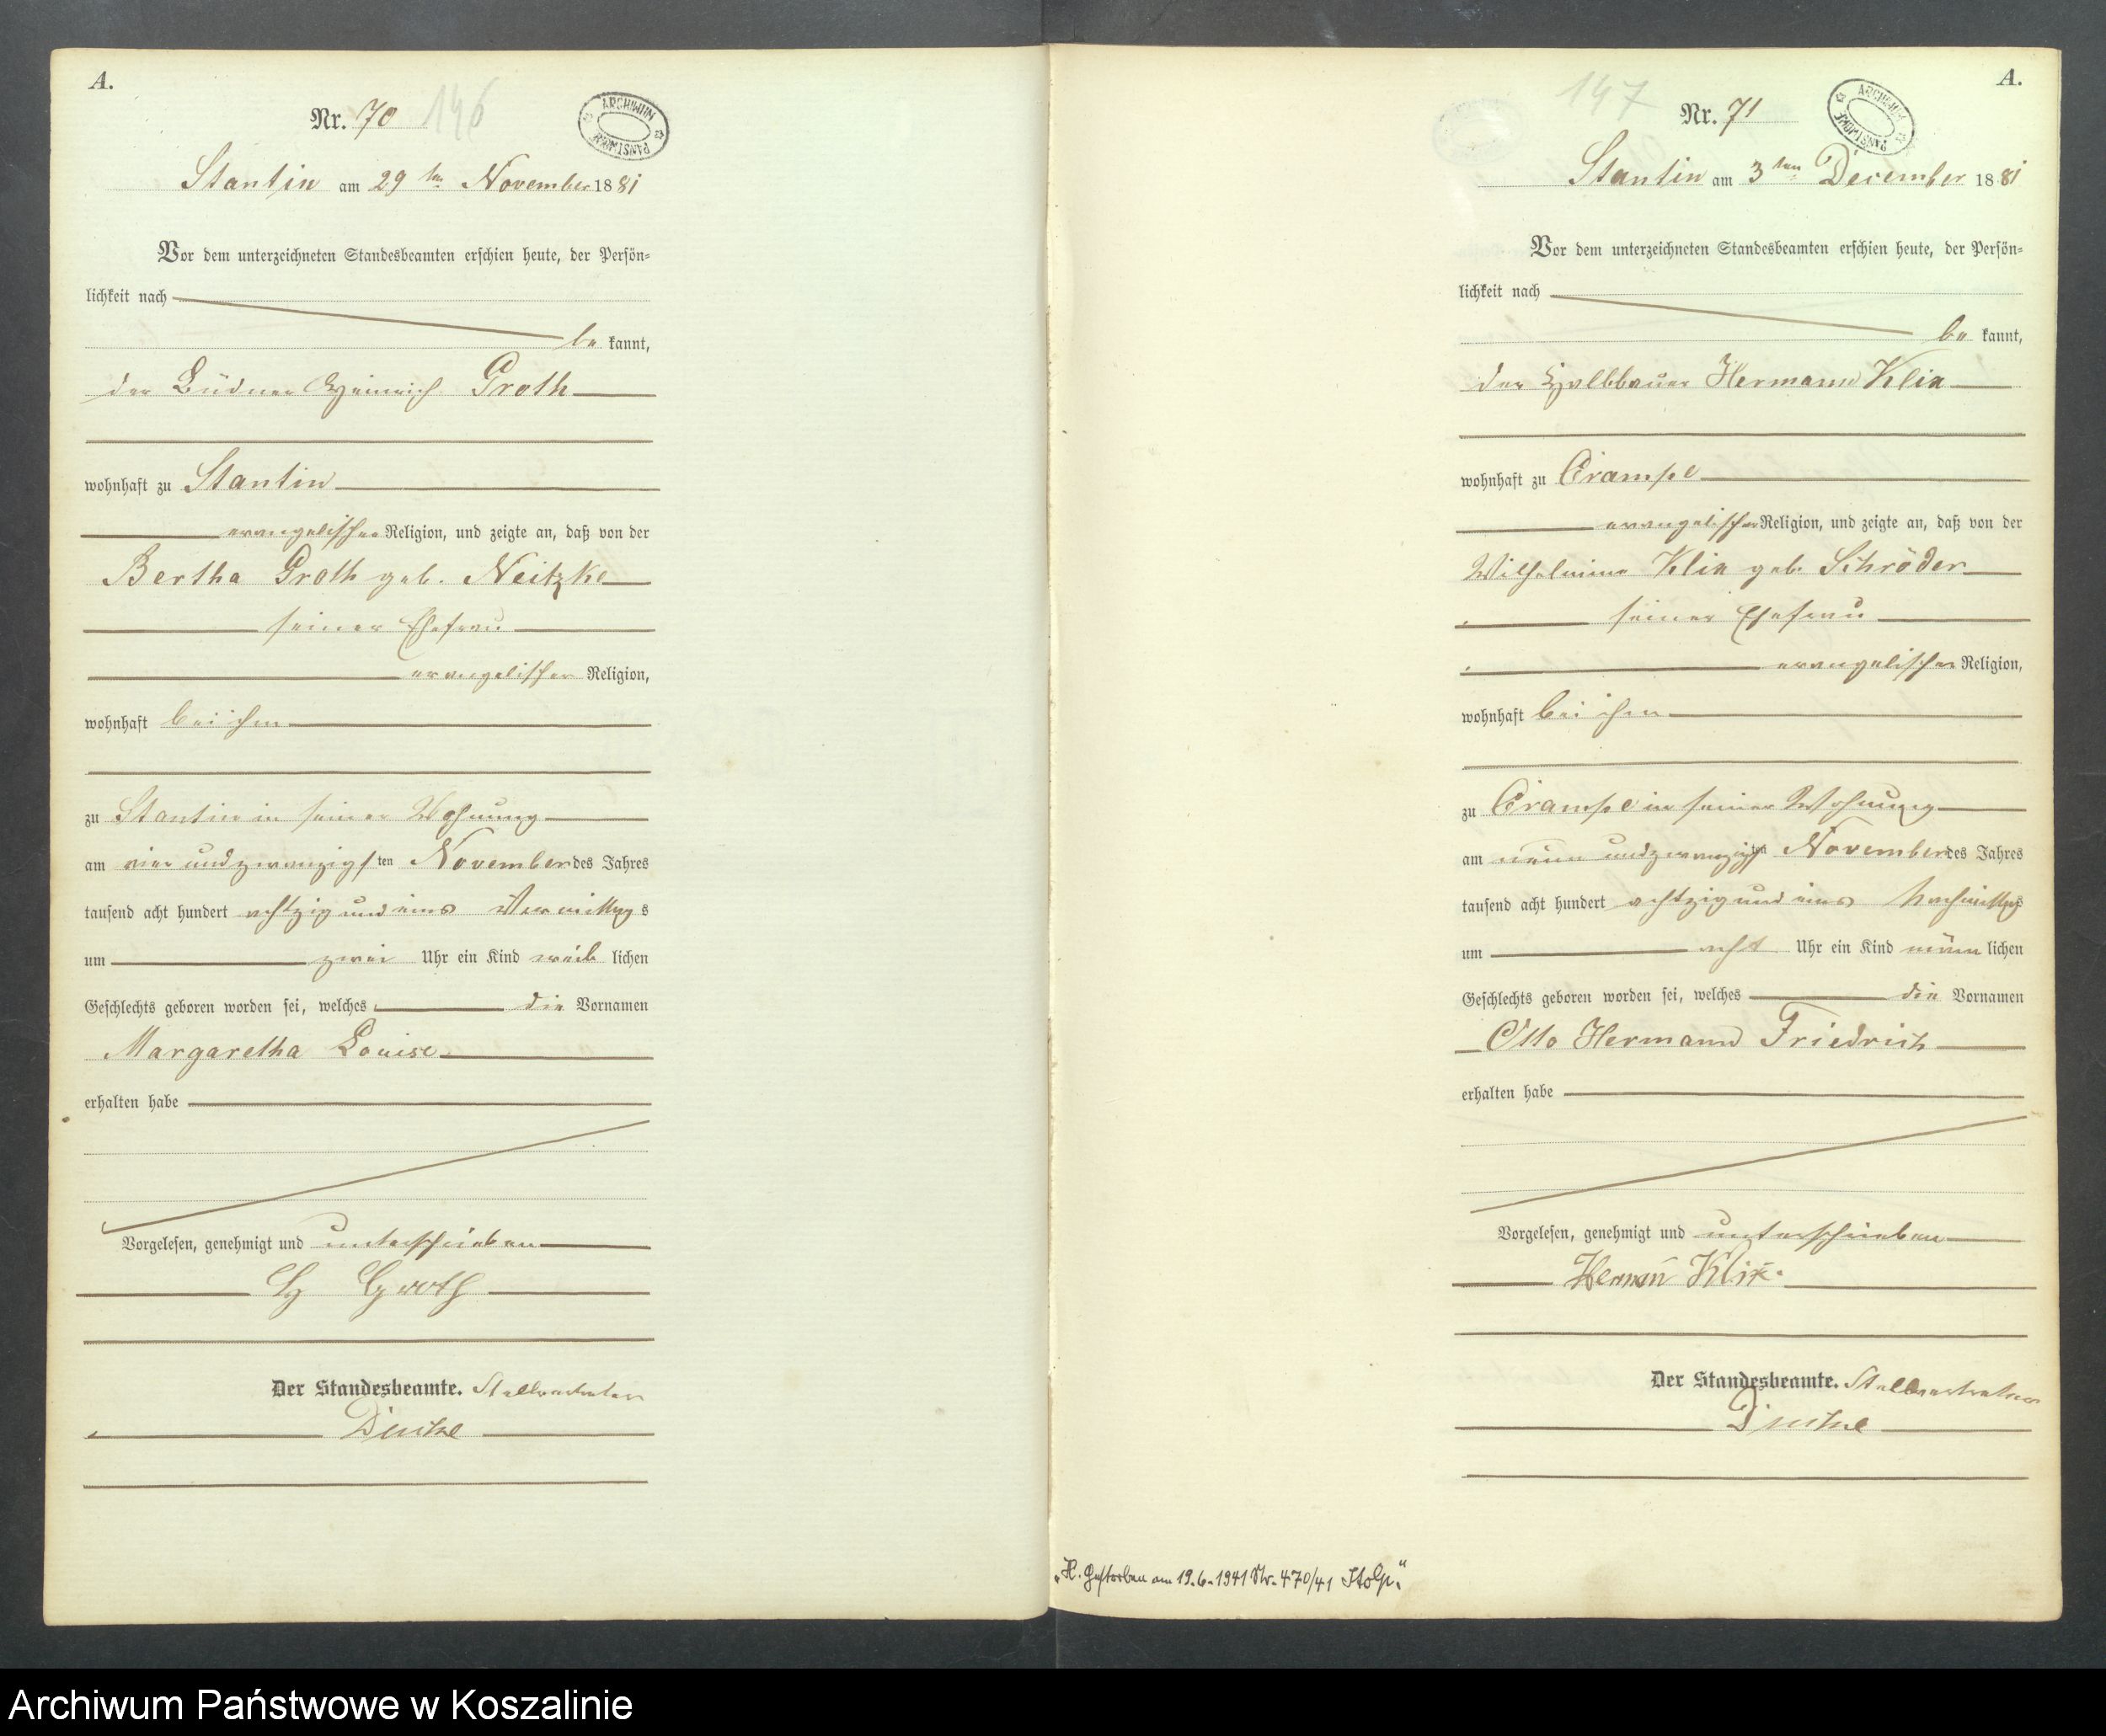 A.
Nr. 70 146
ARCHIWUM PAŃSTWOWE
Stantin am 29ten November 1881
Vor dem unterzeichneten Standesbeamten erschien heute, der Persön-
lichkeit nach
be kannt,
der Büdner Heinrich Groth
wohnhaft zu Stantin
evangelischer Religion, und zeigte an, daß von der
Bertha Groth geb. Neitzke
seiner Ehefrau
evangelischer Religion,
wohnhaft bei ihm
zu Stantin in seiner Wohnung
am vier und zwanzigsten November des Jahres
tausend acht hundert achtzig und eins Vormittags
um zwei Uhr ein Kind weib lichen
Geschlechts geboren worden sei, welches die Vornamen
Margaretha Louise
erhalten habe
Vorgelesen, genehmigt und unterschrieben
H Groth
Der Standesbeamte. Stellvertreter
A.
147
Nr. 71
ARCHIWUM PAŃSTWOWE
Stantin am 3ten December 1881
Vor dem unterzeichneten Standesbeamten erschien heute, der Persön-
lichkeit nach
be kannt,
der Halbbauer Hermann Klix
wohnhaft zu Crampe
evangelischer Religion, und zeigte an, daß von der
Wilhelmine Klix geb. Schröder
seiner Ehefrau
evangelischer Religion,
wohnhaft bei ihm
zu Crampe in seiner Wohnung
am neun und zwanzigsten November des Jahres
tausend acht hundert achtzig und eins Nachmittags
um acht Uhr ein Kind männ lichen
Geschlechts geboren worden sei, welches die Vornamen
Otto Hermann Friedrich
erhalten habe
Vorgelesen, genehmigt und unterschrieben
Hermañ Klix.
Der Standesbeamte. Stellvertreter
„H. Gestorben am 19.6.1941 Nr. 470/41 Stolp."
Archiwum Państwowe w Koszalinie